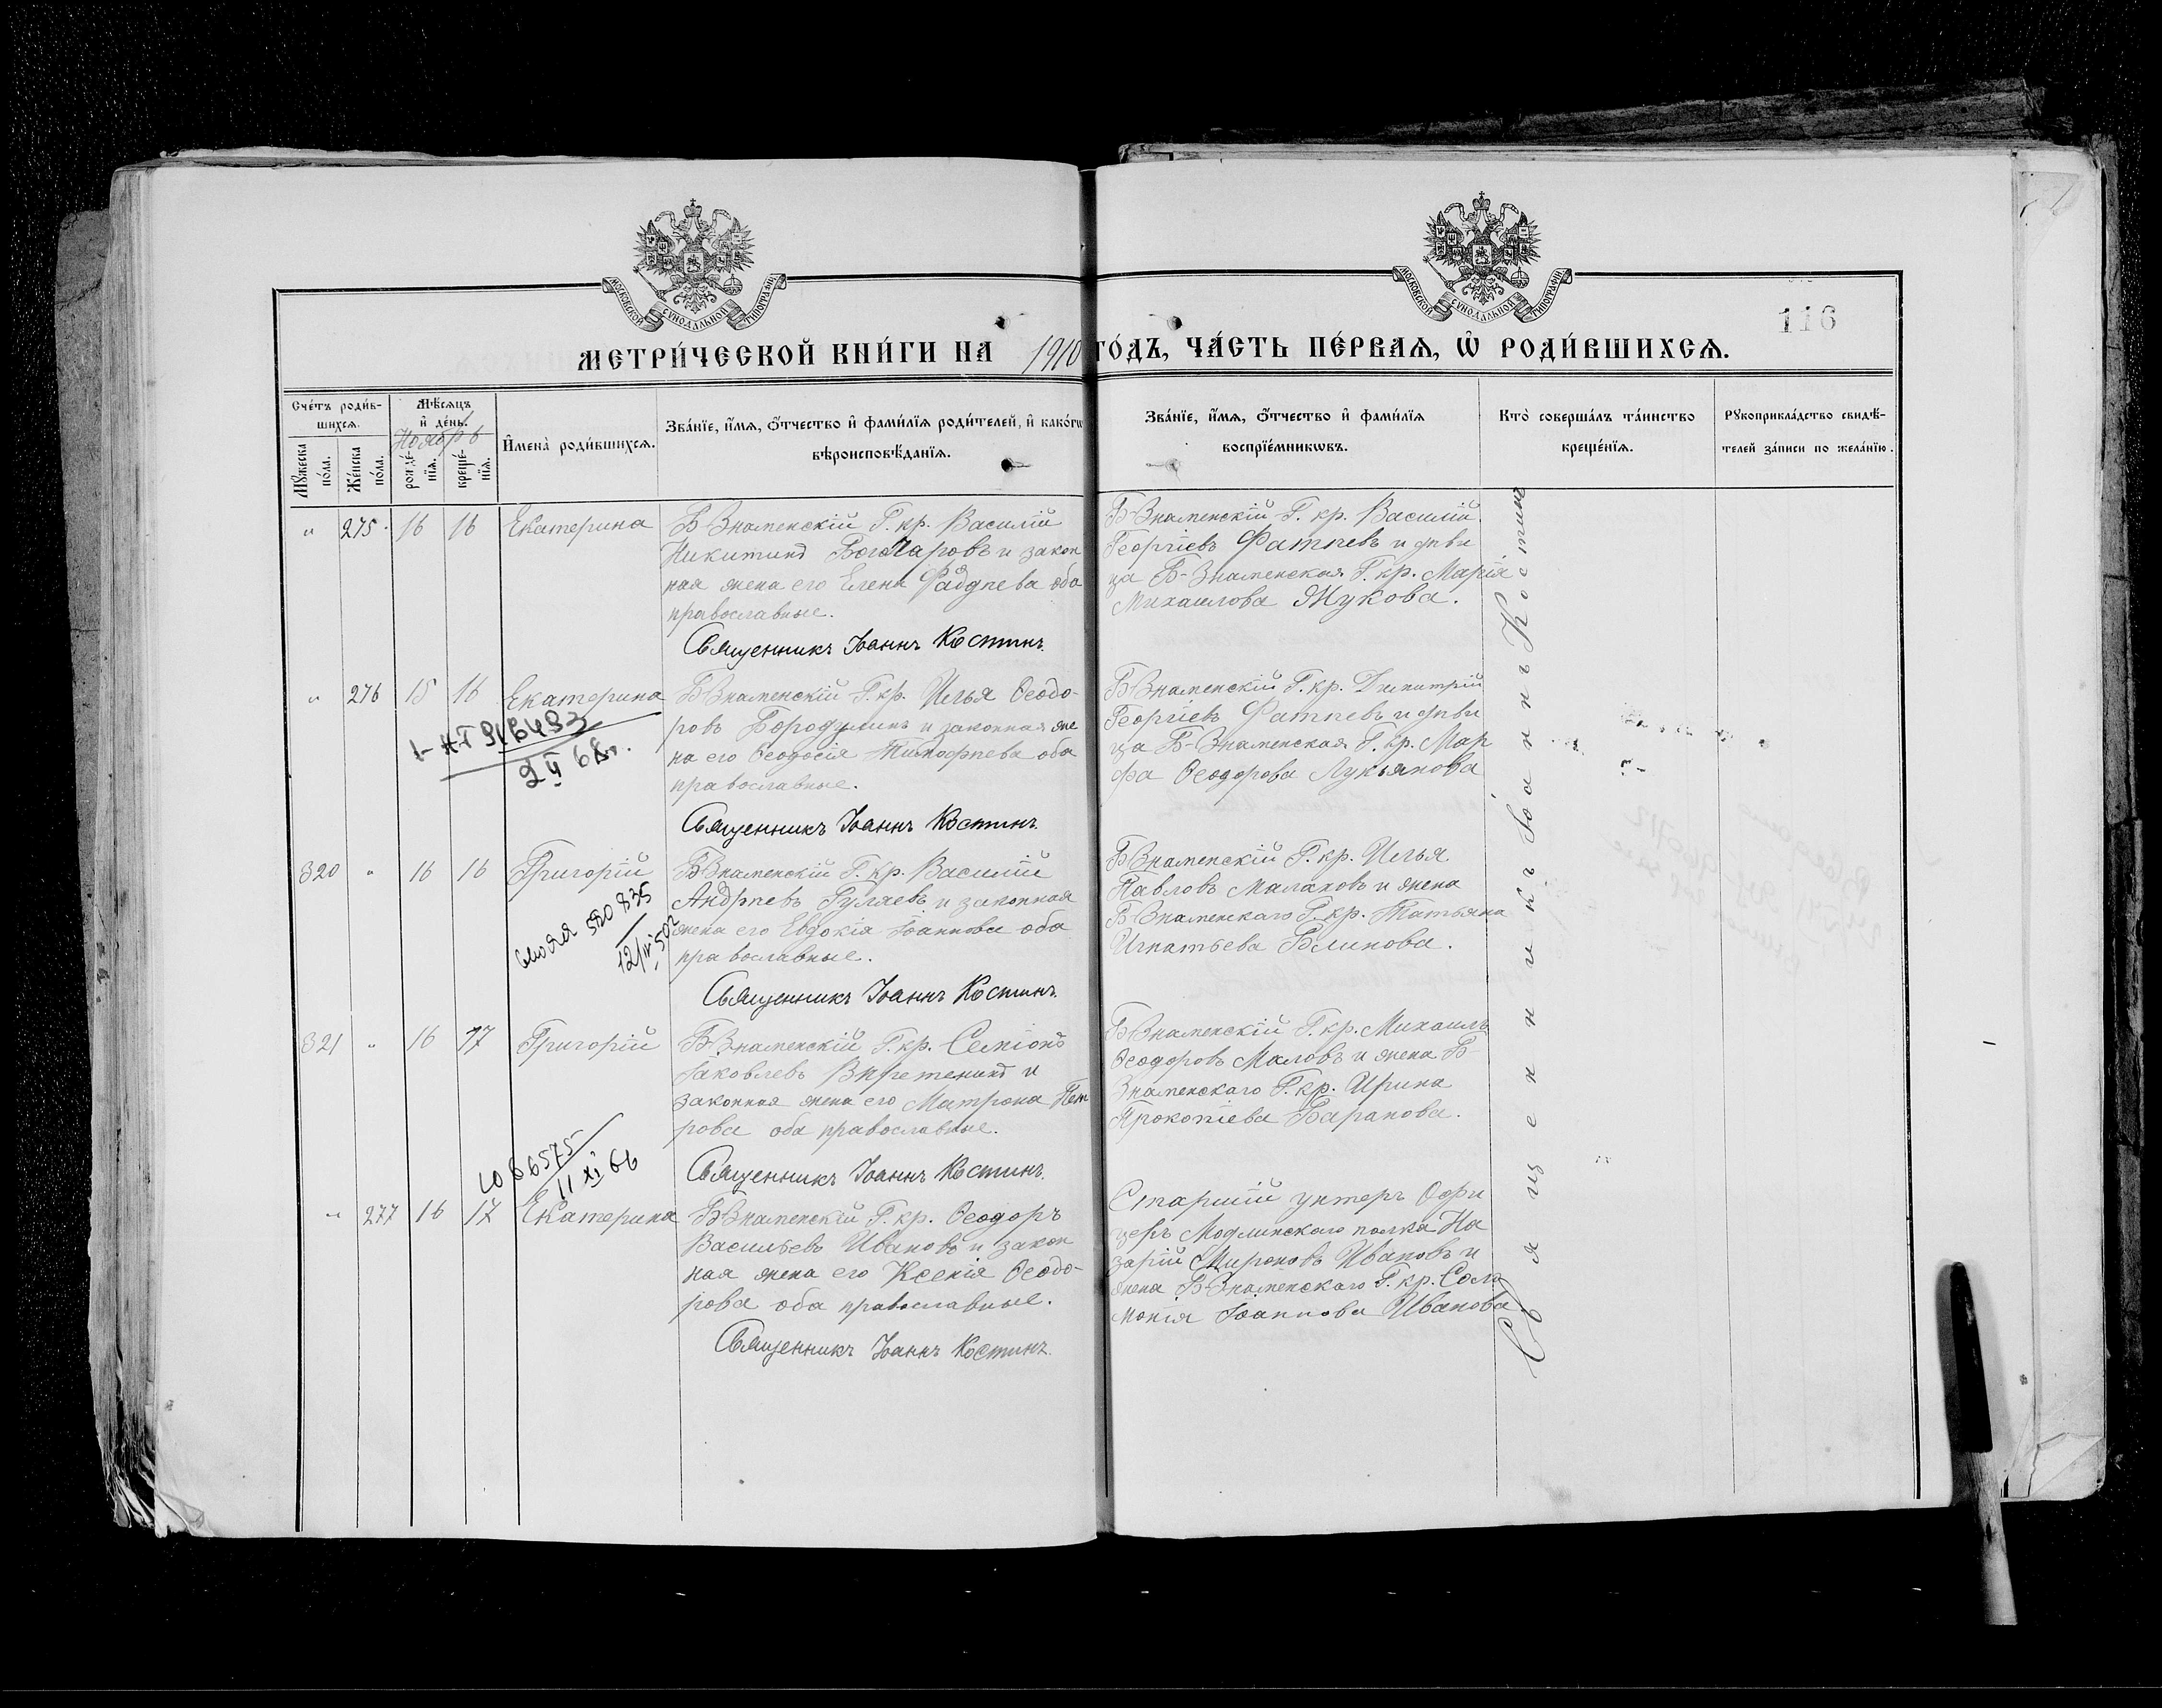 МОСКОВСКОЙ СѴНОДАЛЬНОЙ ТИПОГРАФІИ
МОСКОВСКОЙ СѴНОДАЛЬНОЙ ТИПОГРАФІИ
116
МЕТРИ́ЧЕСКОЙ КНИ́ГИ НА 1910 ГО́ДЪ, ЧА́СТЬ ПЕ́РВАЯ, Ѡ РОДИ́ВШИХСЯ.
Сче́тъ роди́в-
шихся.
Мꙋ́жеска по́ла.
Же́нска по́ла.
Мѣ́сяцъ
и҆ де́нь.
Ноябрь
рожде́-нїя.
креще́-нїя.
И҆мена̀ роди́вшихся.
Зва́нїе, и҆́мя, ѻ҆́тчество и҆ фами́лїя роди́телей, и҆ како́гѡ
вѣроисповѣ́данїя.
Зва́нїе, и҆́мя, ѻ҆́тчество и҆ фами́лїя
воспрїе́мникѡвъ.
Кто̀ соверша́лъ та́инство
креще́нїя.
Рꙋкоприкла́дство свидѣ́-
телей за́писи по жела́нїю.
" 275. 16 16 Екатерина
Б-Знаменскій Г. кр. Василій
Никитинъ и закон
ная жена его Елена Фаддѣева оба
православные.
Священникъ Іоаннъ Костинъ.
Б-Знаменскій Г. кр. Василій
Георгіевъ Фатѣевъ и дѣви
ца Б-Знаменская Г. кр. Марія
Михаилова Жукова.
" 276 15 16 Екатерина
2 V 68г.
Б-Знаменскій Г. кр. Илья Ѳеодо-
ровъ Бородулинъ и законная же
на его Ѳеодосія Тимофѣева оба
православные.
Священникъ Іоаннъ Костинъ.
Б-Знаменскій Г. кр. Димитрій
Георгіевъ Фатѣевъ и дѣви
ца Б-Знаменская Г. кр. Мар
фа Ѳеодорова Лукьянова
320 " 16 16 Григорій
Б-Знаменскій Г. кр. Василій
Андрѣевъ Гуляевъ и законная
жена его Евдокія Іоаннова оба
православные.
Священникъ Іоаннъ Костинъ.
Б-Знаменскій Г. кр. Илья
Павловъ Малаховъ и жена
Б-Знаменскаго Г. кр. Татьяна
Игнатьева Блинова.
321 " 16 17 Григорій
11 XI 66
Б-Знаменскій Г. кр. Семіонъ
Іаковлевъ Вѣретенинъ и
законная жена его Матрона Пет
рова оба православные.
Священникъ Іоаннъ Костинъ.
Б-Знаменскій Г. кр. Михаилъ
Ѳеодоровъ Маловъ и жена Б-
Знаменскаго Г. кр. Ирина
Прокопіева Баранова.
" 277 16 17 Екатерина
Б-Знаменскій Г. кр. Ѳеодоръ
Васильевъ Ивановъ и закон
ная жена его Ксенія Ѳеодо-
рова оба православные.
Священникъ Іоаннъ Костинъ.
Старшій унтеръ Офи
церъ Модлинскаго полка На
зарій Мироновъ Ивановъ и
жена Б-Знаменскаго Г. кр. Соло
монія Іоаннова Иванова
Священникъ Іоаннъ Костинъ